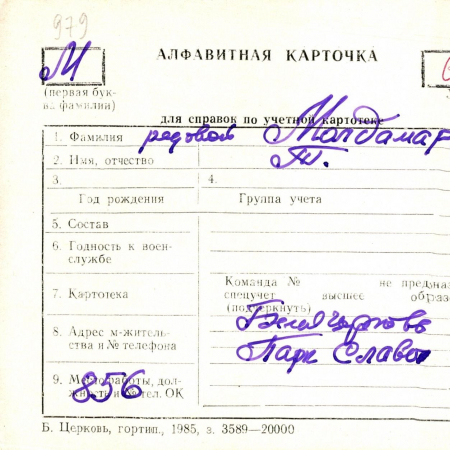 979
М
АЛФАВИТНАЯ КАРТОЧКА
(первая бук-
ва фамилии)
для справок по учетной картотеке
1. Фамилия рядовой Молдамар
2. Имя, отчество Т.
3.
4.
Год рождения
Группа учета
5. Состав
6. Годность к воен-
службе
7. Картотека
Команда № не предназ
спецучет высшее образ
(подчеркнуть)
8. Адрес м-житель-
ства и № телефона
Белая Церковь
Парк Славы
9. Место работы, дол-
жность и № тел. ОК
856
Б. Церковь, гортип., 1985, з. 3589—20000